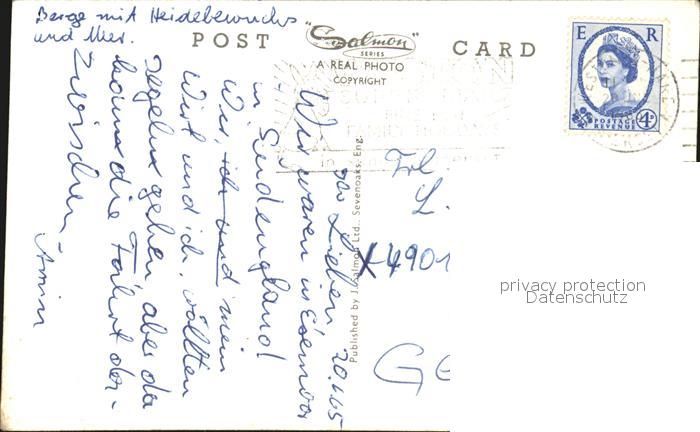 Berge mit Heidebewuchs
und Meer.
POST "Salmon" CARD
SERIES
A REAL PHOTO
COPYRIGHT
E R
POSTAGE 4D
REVENUE
Frl.
L.
4901
G
Published by J. Salmon Ltd., Sevenoaks, Eng.
20.
Ihr Lieben,
Wir waren in Exmoor
in Südengland!
Wir, ich und mein
Wirt und ich, wollten
segeln gehen, aber da
kam die Fahrt da-
zwischen.
Armin
privacy protection
Datenschutz